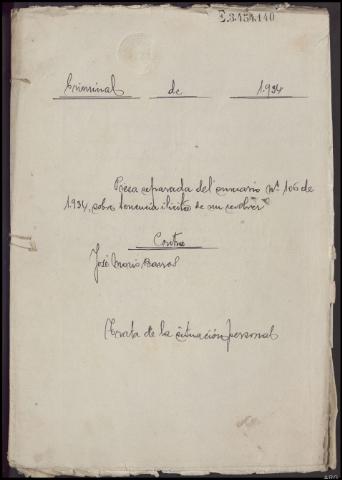 E.3.454.140
Criminal de 1.934
Pieza separada del sumario nº 106 de
1.934, sobre tenencia ilícita de un revolver
Contra
José Barros
(Trata de la situación personal
ARG